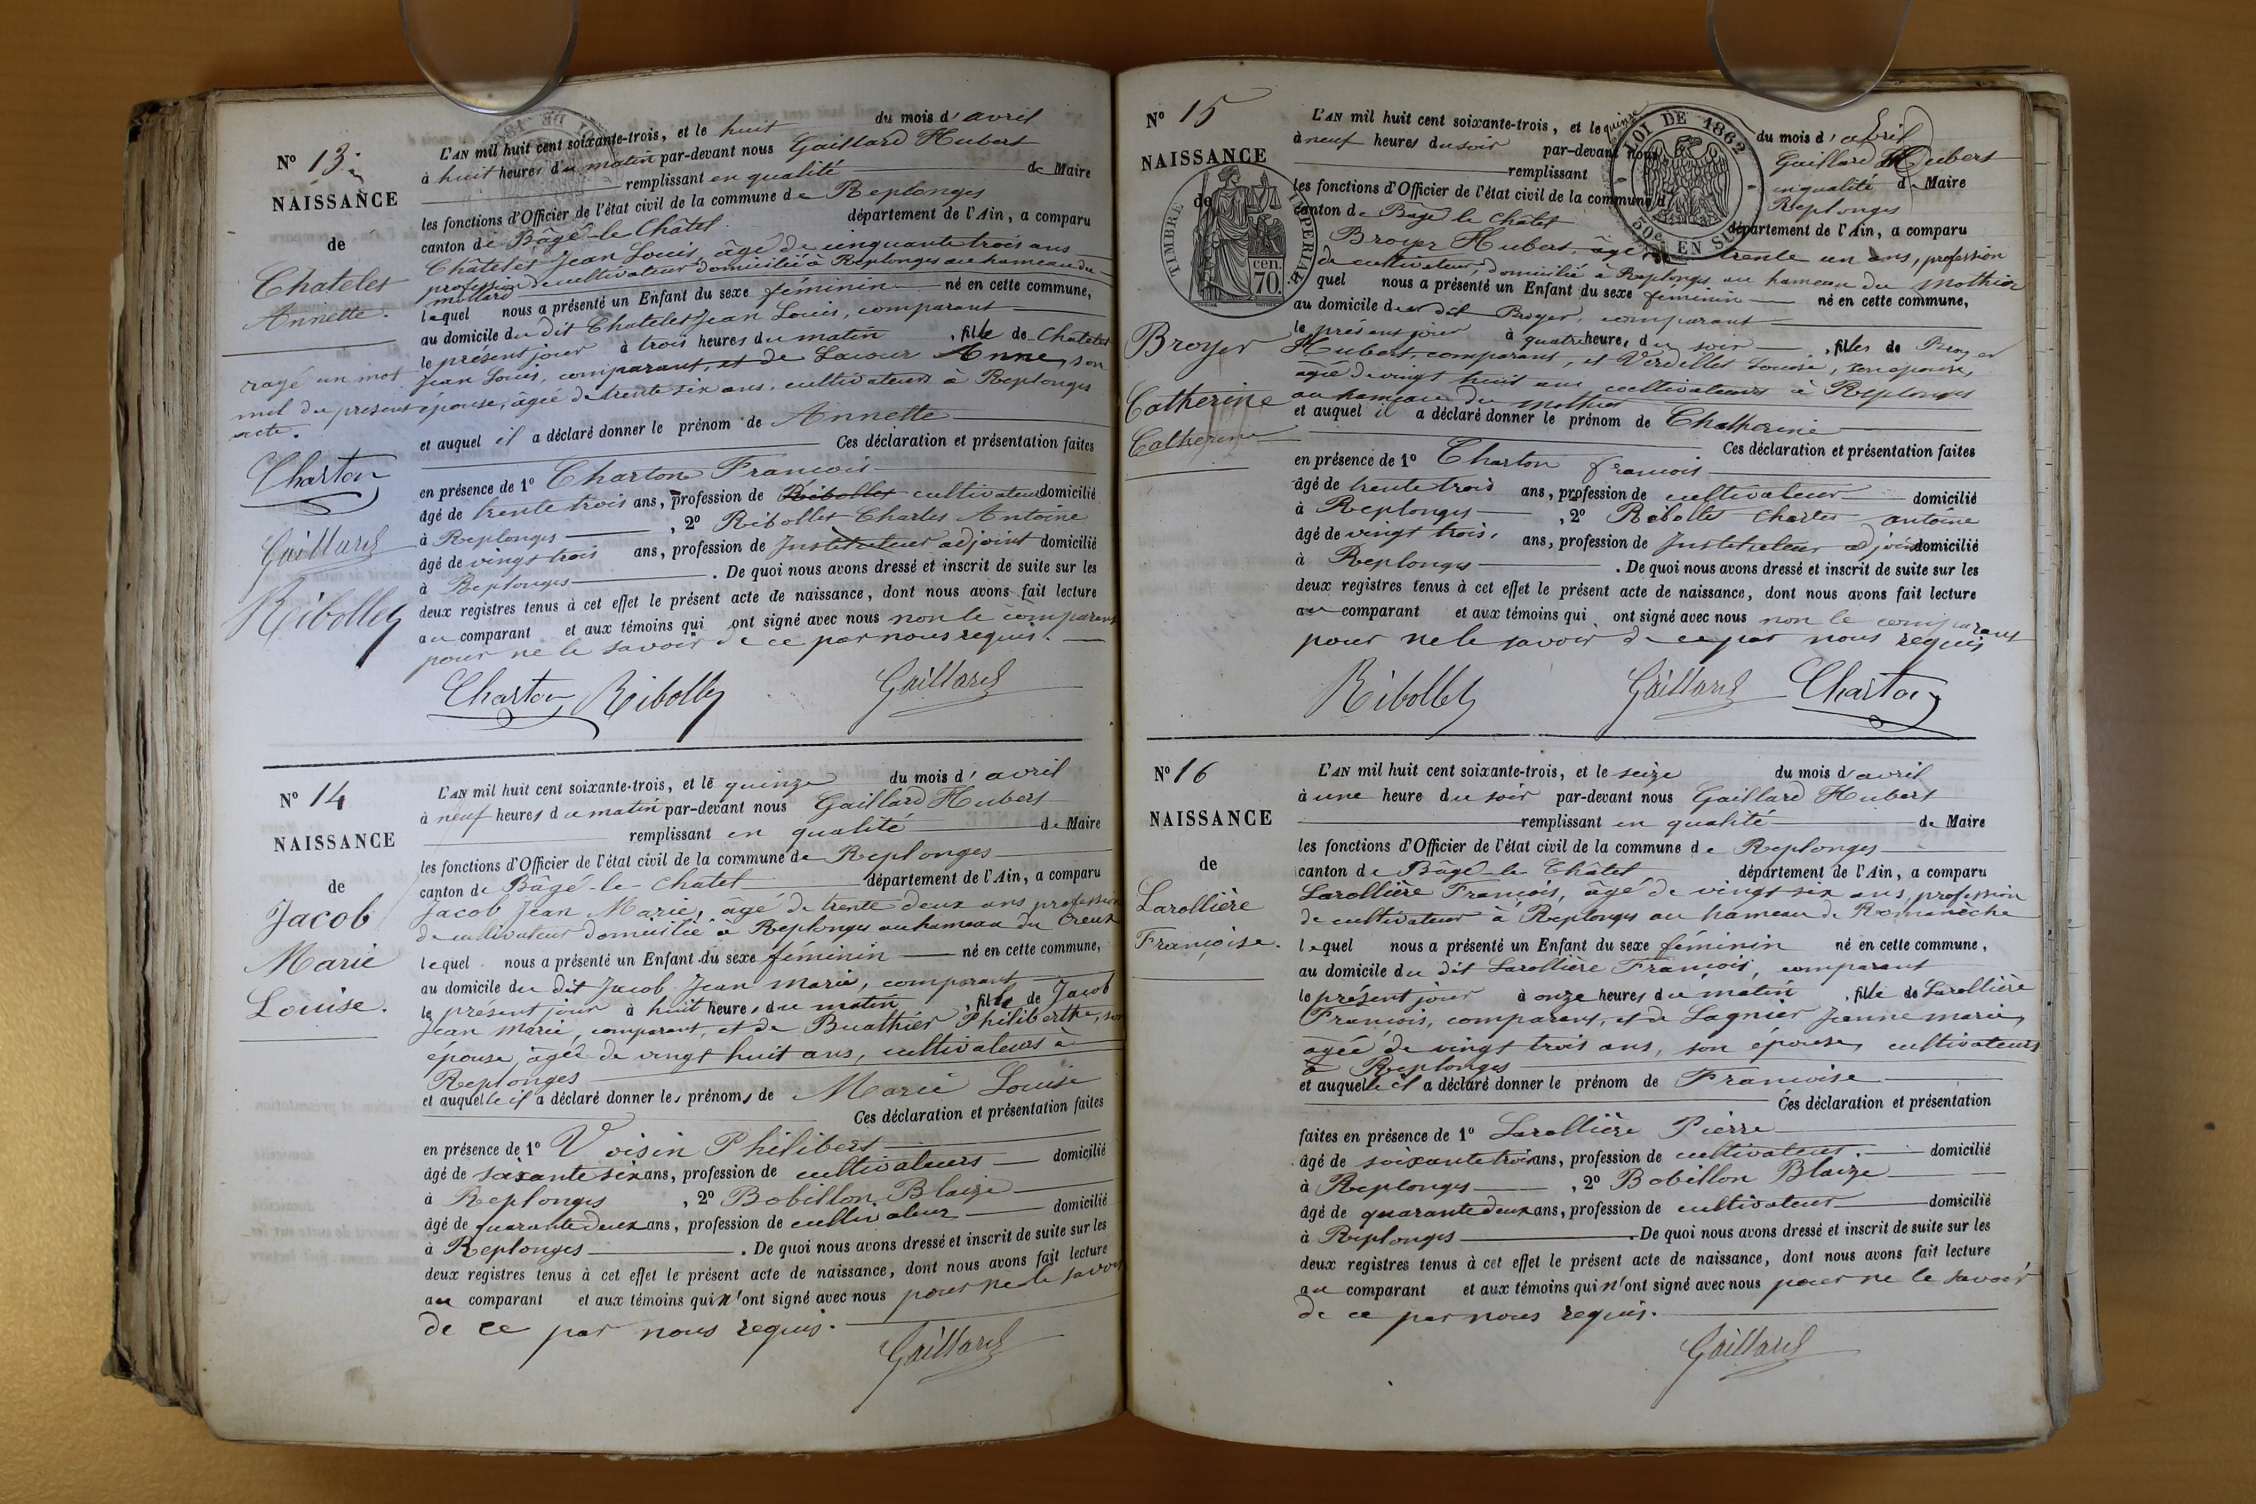 N° 13.
NAISSANCE
de
Chatelet
Annette.
rayé un mot
nul du présent
acte.
Charton
Gaillard
Ribollet
L'AN mil huit cent soixante-trois, et le huit du mois d'avril
à huit heures du matin par-devant nous Gaillard Hubert
remplissant en qualité de Maire
les fonctions d'Officier de l'état civil de la commune de Replonges
canton de Bâgé-le-Châtel département de l'Ain, a comparu
Châtelet Jean Louis, âgé de cinquante trois ans
profession de cultivateur domicilié à Replonges au hameau du
mollard
lequel nous a présenté un Enfant du sexe féminin né en cette commune,
au domicile du dit Chatelet Jean Louis, comparant
le présent jour à trois heures du matin, fille de Chatelet
Jean Louis, comparant, et de Lacour Anne, son
épouse, âgée de trente six ans, cultivateurs à Replonges
et auquel il a déclaré donner le prénom de Annette
Ces déclaration et présentation faites
en présence de 1° Charton Francois
âgé de trente trois ans, profession de Ribollet cultivateur domicilié
à Replonges, 2° Ribollet Charles Antoine
âgé de vingt trois ans, profession de Instituteur adjoint domicilié
à Replonges. De quoi nous avons dressé et inscrit de suite sur les
deux registres tenus à cet effet le présent acte de naissance, dont nous avons fait lecture
au comparant et aux témoins qui ont signé avec nous non le comparant
pour ne le savoir de ce par nous requis.
Charton Ribollet Gaillard
N° 14
NAISSANCE
de
Jacob
Marie
Louise.
L'AN mil huit cent soixante-trois, et le quinze du mois d'avril
à neuf heures du matin par-devant nous Gaillard Hubert
remplissant en qualité de Maire
les fonctions d'Officier de l'état civil de la commune de Replonges
canton de Bâgé-le-Chatel département de l'Ain, a comparu
Jacob Jean Marie, âgé de trente deux ans profession
de cultivateur domicilié à Replonges au hameau du Creux
lequel nous a présenté un Enfant du sexe féminin né en cette commune,
au domicile du dit Jacob Jean Marie, comparant
le présent jour à huit heures du matin, fille de Jacob
Jean Marie, comparant, et de Buathier Philiberthe, son
épouse, âgée de vingt huit ans, cultivateurs à
Replonges
et auquelle il a déclaré donner les prénoms de Marie Louise
Ces déclaration et présentation faites
en présence de 1° Voisin Philibert
âgé de soixante six ans, profession de cultivateurs domicilié
à Replonges, 2° Bobillon Blaize
âgé de quarante deux ans, profession de cultivateur domicilié
à Replonges. De quoi nous avons dressé et inscrit de suite sur les
deux registres tenus à cet effet le présent acte de naissance, dont nous avons fait lecture
au comparant et aux témoins qui n'ont signé avec nous pour ne le savoir
de ce par nous requis.
Gaillard
N° 15
NAISSANCE
de
TIMBRE IMPERIAL
70 cen.
Broyer
Catherine
Catherine
LOI DE 1862
50c EN SUS
L'AN mil huit cent soixante-trois, et le quinze du mois d'avril
à neuf heures du soir par-devant nous Gaillard Hubert
remplissant en qualité de Maire
les fonctions d'Officier de l'état civil de la commune de Replonges
canton de Bâgé le Châtel département de l'Ain, a comparu
Broyer Hubert, âgé de trente un ans, profession
de cultivateur, domicilié à Replonges au hameau du mothier
quel nous a présenté un Enfant du sexe féminin né en cette commune,
au domicile du dit Broyer, comparant
le présent jour à quatre heures du soir, filles de Broyer
Hubert, comparant, et Verdillet Louise, son épouse,
agée de vingt huit ans cultivateurs à Replonges
au hameau du mothier
et auquel il a déclaré donner le prénom de Chatherine
Ces déclaration et présentation faites
en présence de 1° Charton francois
âgé de trente trois ans, profession de cultivateur domicilié
à Replonges, 2° Ribollet Charles antoine
âgé de vingt trois, ans, profession de Instituteur adjoint domicilié
à Replonges. De quoi nous avons dressé et inscrit de suite sur les
deux registres tenus à cet effet le présent acte de naissance, dont nous avons fait lecture
au comparant et aux témoins qui ont signé avec nous non le comparant
pour ne le savoir de ce par nous requis
Ribollet Gaillard Charton
N° 16
NAISSANCE
de
Larollière
Françoise.
L'AN mil huit cent soixante-trois, et le seize du mois d'avril
à une heure du soir par-devant nous Gaillard Hubert
remplissant en qualité de Maire
les fonctions d'Officier de l'état civil de la commune de Replonges
canton de Bâgé-le-Châtel département de l'Ain, a comparu
Larollière François, âgé de vingt six ans, profession
de cultivateur à Replonges au hameau de Romanèche
lequel nous a présenté un Enfant du sexe féminin né en cette commune,
au domicile du dit Larollière François, comparant
le présent jour à onze heures du matin, fille de Larollière
Francois, comparant, et de Lagnier Jeanne marie,
agée de vingt trois ans, son épouse, cultivateurs
à Replonges
et auquelle il a déclaré donner le prénom de Francoise
Ces déclaration et présentation
faites en présence de 1° Larollière Pierre
âgé de soixante trois ans, profession de cultivateur. domicilié
à Replonges, 2° Bobillon Blaize
âgé de quarante deux ans, profession de cultivateur domicilié
à Replonges. De quoi nous avons dressé et inscrit de suite sur les
deux registres tenus à cet effet le présent acte de naissance, dont nous avons fait lecture
au comparant et aux témoins qui n'ont signé avec nous pour ne le savoir
de ce par nous requis.
Gaillard